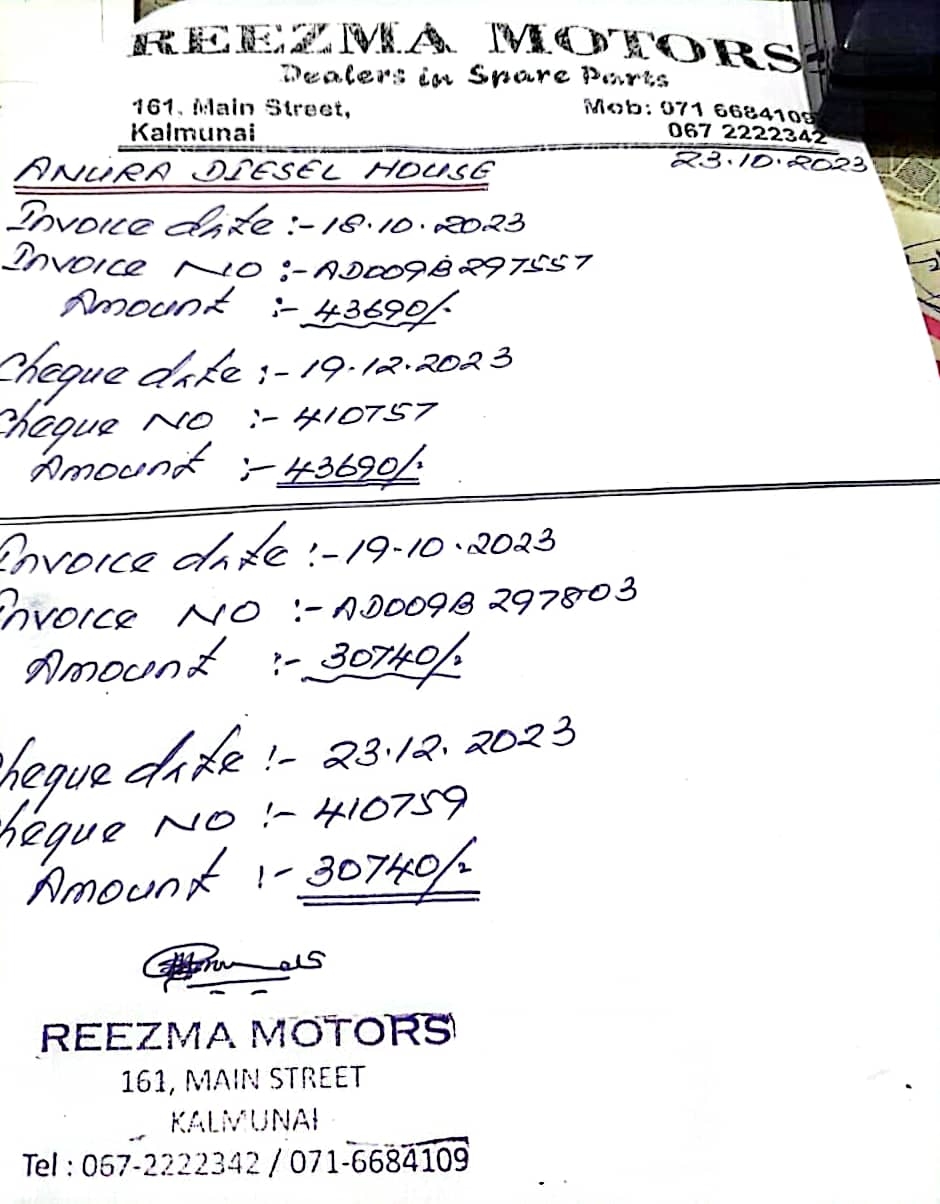 REEZMA MOTORS
Dealers in Spare Parts
161, Main Street,
Kalmunai
Mob: 071 6684109
067 2222342
23.10.2023
ANURA DIESEL HOUSE
Invoice date :- 18.10.2023
Invoice NO :- AD009B297557
Amount :- 43690/-
Cheque date :- 19.12.2023
Cheque NO :- 410757
Amount :- 43690/-
Invoice date :- 19-10.2023
Invoice NO :- AD009B 297803
Amount :- 30740/-
Cheque date :- 23.12.2023
Cheque NO :- 410759
Amount :- 30740/-
REEZMA MOTORS
161, MAIN STREET
KALMUNAI
Tel : 067-2222342 / 071-6684109